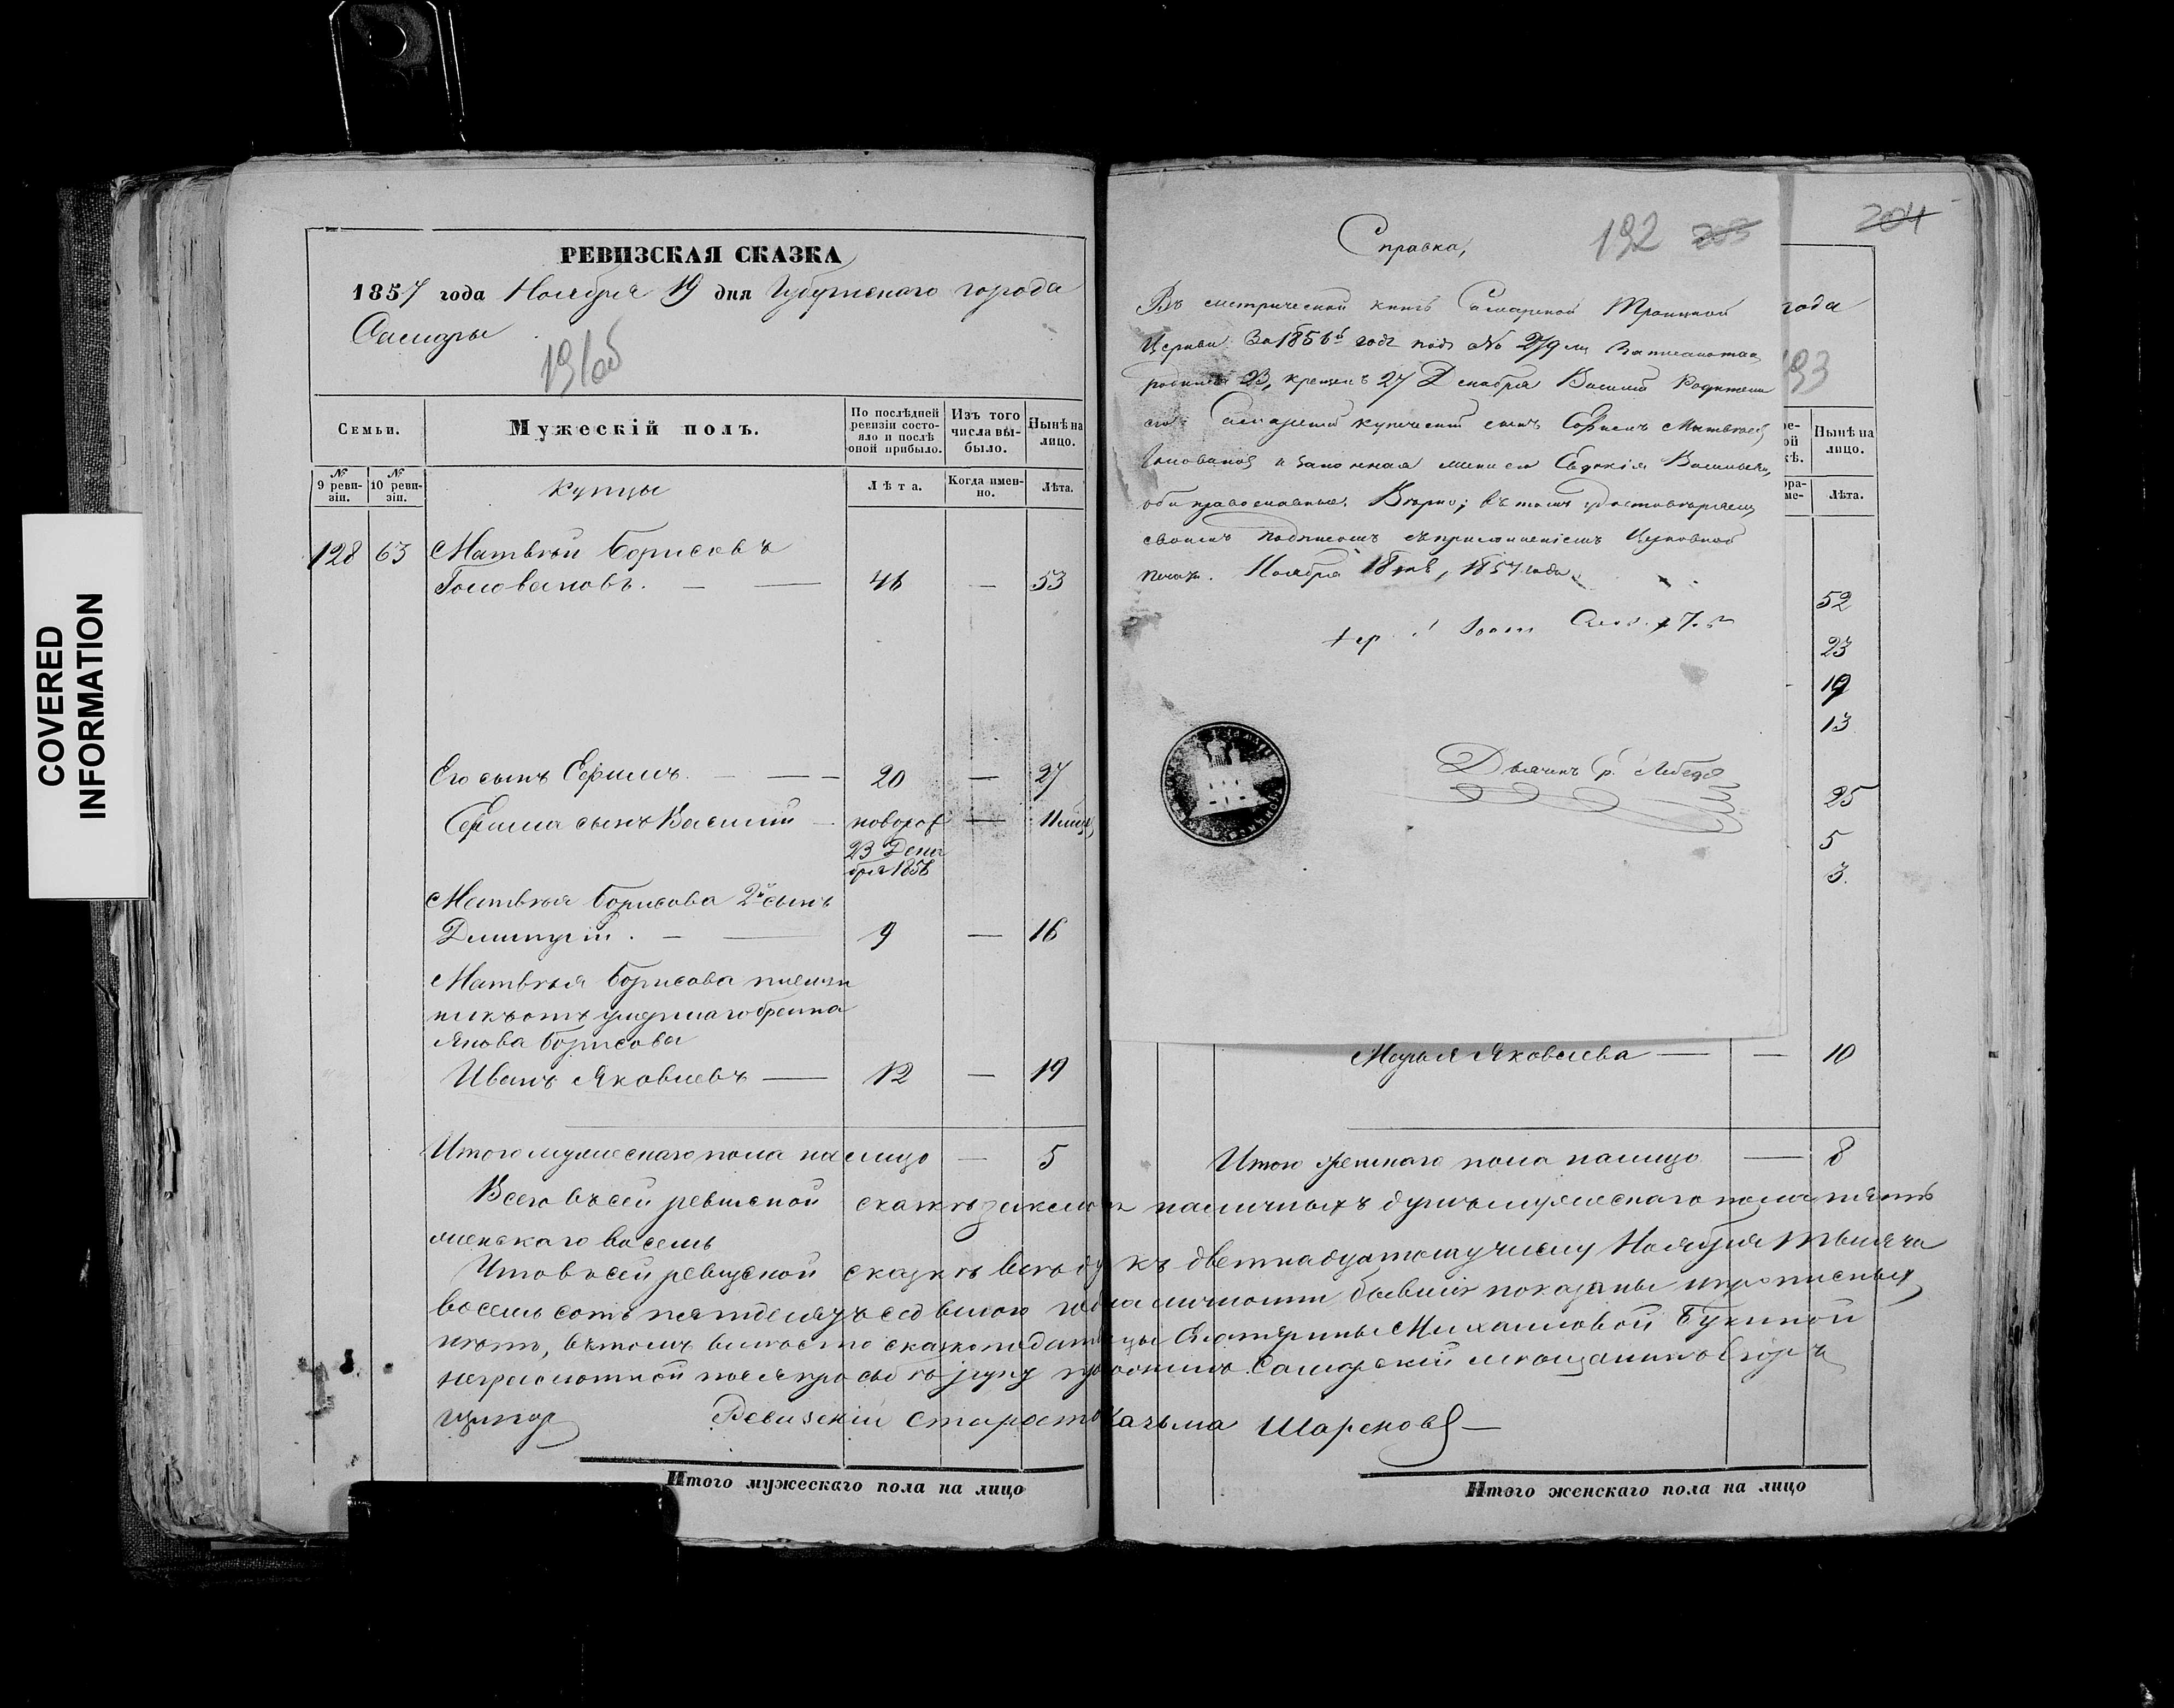 COVERED
INFORMATION
РЕВИЗСКАЯ СКАЗКА
1857 года Ноября 19 дня Губернскаго города
Самары
191об
Семьи.
Мужескій полъ.
По послѣдней ревизіи состояло и послѣ оной прибыло.
Изъ того числа выбыло.
Нынѣ на лицо.
№ 9 ревизіи.
№ 10 ревизіи.
Купцы
Лѣта.
Когда именно.
Лѣта.
128 63 Матвѣй Борисовъ
Головановъ. — — 46 — 53
Его сынъ Ефимъ. — — — 20 — 27
Ефима сынъ Василий — новорож — 11 мѣс,
23 Дека
бря 1856
Матвѣя Борисова 2й сынъ
Дмитрій. — — 9 — 16
Матвѣя Борисова племян
никъ отъ умершаго брата
Якова Борисова
Иванъ Яковлевъ — 12 — 19
Итого мужескаго пола налицо — 5
Справка,
192 203
204
Въ метрической книгѣ Самарской Троицкой
Церкви За 1856й годъ подъ № 279м Записано такъ
родился 23, крещенъ 27 Декабря Василій Родители
его: Самарскій купеческій сынъ Ефимъ Матвѣевъ
Головановъ и законная жена его Евдокія Васильева,
оба православные. Вѣрно; въ томъ удостовѣряемъ
своимъ подписомъ съ приложеніемъ Церковной
печати. Ноября 18 дня, 1857 года.
Дьячекъ
года
193
Нынѣ на лицо.
Лѣта.
52
23
19
13
25
5
3.
Марья Яковлева — — 10
Итого женскаго пола налицо — 8
Всего въ сей ревизской сказкѣ наличныхъ душъ мужескаго пола пять
женскаго восемь
Что въ сей ревизской сказкѣ всѣ къ двенадцатому числу Ноября тысяча
восемь сотъ пятдесятъ седьмого года на личности бывшіе показаны и прописныхъ
нѣтъ, въ томъ вместо сказкоподательницы Екатерины Михайловой Букиной
неграмотной по ея просьбѣ руку приложилъ Самарскій мѣщанинъ Егоръ
Ревизскій Староста Казьма Шареновъ —
Итого мужескаго пола на лицо
Итого женскаго пола на лицо